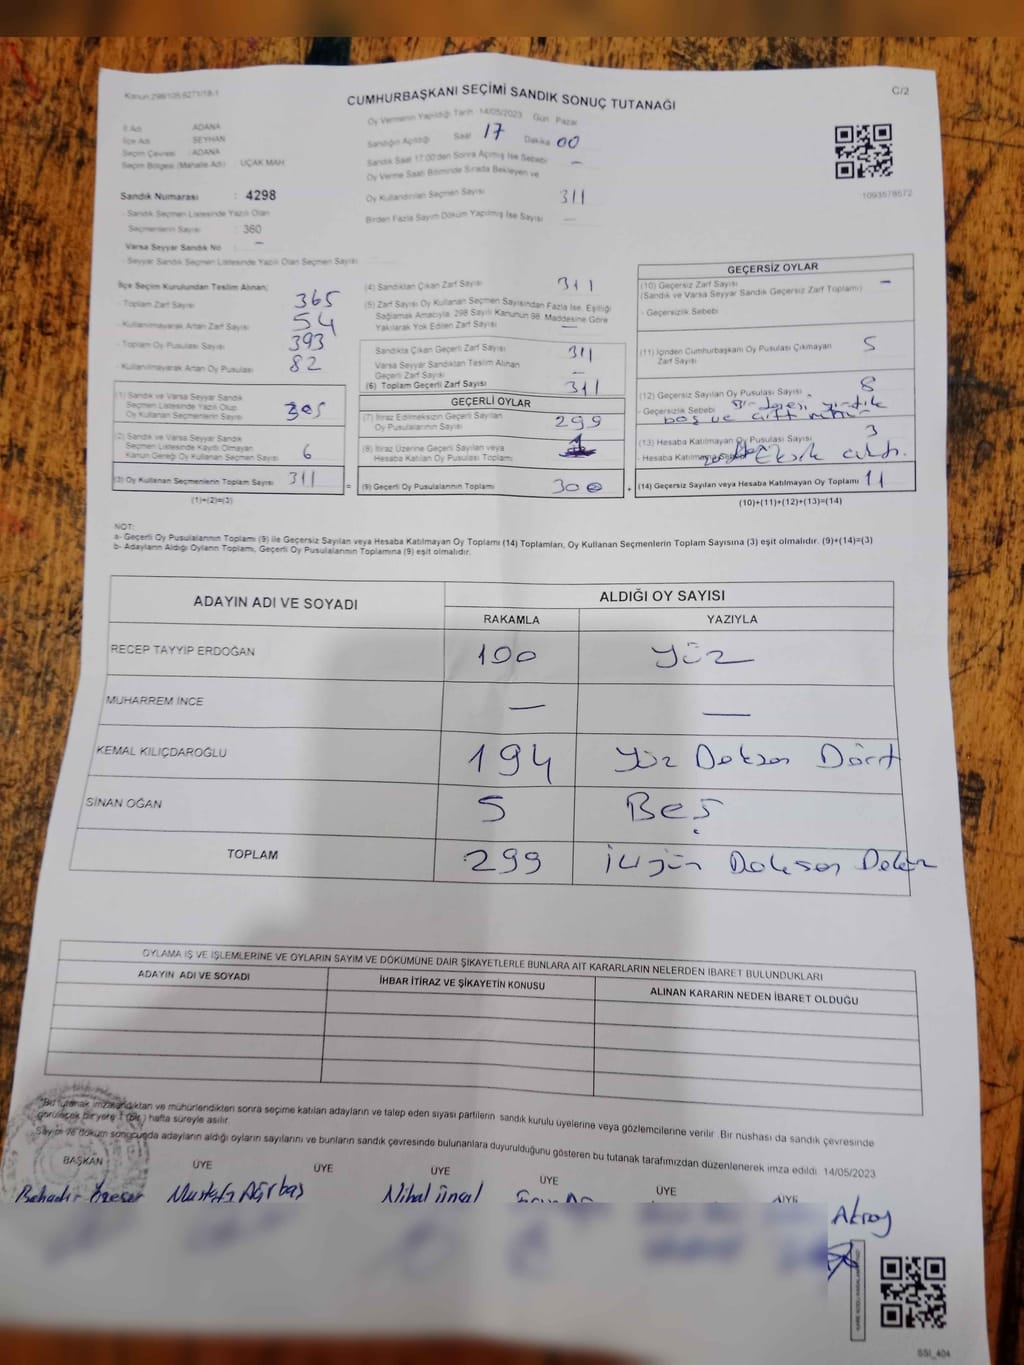 Kanun 298/105,6271/18-1
CUMHURBAŞKANI SEÇİMİ SANDIK SONUÇ TUTANAĞI
C/2
İl Adı ADANA
İlçe Adı SEYHAN
Seçim Çevresi : ADANA
Seçim Bölgesi (Mahalle Adı) : UÇAK MAH
Sandık Numarası : 4298
- Sandık Seçmen Listesinde Yazılı Olan
Seçmenlerin Sayısı : 360
Varsa Seyyar Sandık No —
- Seyyar Sandık Seçmen Listesinde Yazılı Olan Seçmen Sayısı
Oy Vermenin Yapıldığı Tarih 14/05/2023 Gün Pazar
Sandığın Açıldığı Saat 17 Dakika 00
Sandık Saat 17:00'den Sonra Açılmış İse Sebebi —
Oy Verme Saati Bitiminde Sırada Bekleyen ve
Oy Kullandırılan Seçmen Sayısı 311
Birden Fazla Sayım Döküm Yapılmış İse Sayısı —
1093578572
İlçe Seçim Kurulundan Teslim Alınan;
- Toplam Zarf Sayısı 365
- Kullanılmayarak Artan Zarf Sayısı 54
- Toplam Oy Pusulası Sayısı 393
- Kullanılmayarak Artan Oy Pusulası 82
(1) Sandık ve Varsa Seyyar Sandık
Seçmen Listesinde Yazılı Olup
Oy Kullanan Seçmenlerin Sayısı 305
(2) Sandık ve Varsa Seyyar Sandık
Seçmen Listesinde Kayıtlı Olmayan
Kanun Gereği Oy Kullanan Seçmen Sayısı 6
(3) Oy Kullanan Seçmenlerin Toplam Sayısı 311
(1)+(2)=(3)
(4) Sandıktan Çıkan Zarf Sayısı 311
(5) Zarf Sayısı Oy Kullanan Seçmen Sayısından Fazla İse, Eşitliği
Sağlamak Amacıyla, 298 Sayılı Kanunun 98. Maddesine Göre
Yakılarak Yok Edilen Zarf Sayısı —
Sandıkta Çıkan Geçerli Zarf Sayısı 311
Varsa Seyyar Sandıktan Teslim Alınan
Geçerli Zarf Sayısı —
(6) Toplam Geçerli Zarf Sayısı 311
GEÇERLİ OYLAR
(7) İtiraz Edilmeksizin Geçerli Sayılan
Oy Pusulalarının Sayısı 299
(8) İtiraz Üzerine Geçerli Sayılan veya
Hesaba Katılan Oy Pusulası Toplamı 1
= (9) Geçerli Oy Pusulalarının Toplamı 300 +
GEÇERSİZ OYLAR
(10) Geçersiz Zarf Sayısı —
(Sandık ve Varsa Seyyar Sandık Geçersiz Zarf Toplamı)
- Geçersizlik Sebebi
(11) İçinden Cumhurbaşkanı Oy Pusulası Çıkmayan 5
Zarf Sayısı
(12) Geçersiz Sayılan Oy Pusulası Sayısı 8
- Geçersizlik Sebebi yırtık
boş ve çift mühür
(13) Hesaba Katılmayan Oy Pusulası Sayısı 3
- Hesaba Katılmayan Sebebi Eksik çıktı.
(14) Geçersiz Sayılan veya Hesaba Katılmayan Oy Toplamı 11
(10)+(11)+(12)+(13)=(14)
NOT:
a- Geçerli Oy Pusulalarının Toplamı (9) ile Geçersiz Sayılan veya Hesaba Katılmayan Oy Toplamı (14) Toplamları, Oy Kullanan Seçmenlerin Toplam Sayısına (3) eşit olmalıdır. (9)+(14)=(3)
b- Adayların Aldığı Oyların Toplamı, Geçerli Oy Pusulalarının Toplamına (9) eşit olmalıdır.
ADAYIN ADI VE SOYADI ALDIĞI OY SAYISI
RAKAMLA YAZIYLA
RECEP TAYYIP ERDOĞAN 100 Yüz
MUHARREM İNCE — —
KEMAL KILIÇDAROĞLU 194 Yüz Doksan Dört
SİNAN OĞAN 5 Beş
TOPLAM 299 İkiyüz Doksan Dokuz
OYLAMA İŞ VE İŞLEMLERİNE VE OYLARIN SAYIM VE DÖKÜMÜNE DAİR ŞİKAYETLERLE BUNLARA AİT KARARLARIN NELERDEN İBARET BULUNDUKLARI
ADAYIN ADI VE SOYADI İHBAR İTİRAZ VE ŞİKAYETİN KONUSU ALINAN KARARIN NEDEN İBARET OLDUĞU
"Bu tutanak imzalandıktan ve mühürlendikten sonra seçime katılan adayların ve talep eden siyasi partilerin sandık kurulu üyelerine veya gözlemcilerine verilir. Bir nüshası da sandık çevresinde
görülecek bir yere 1 (bir) hafta süreyle asılır.
Sayım ve döküm sonucunda adayların aldığı oyların sayılarını ve bunların sandık çevresinde bulunanlara duyurulduğunu gösteren bu tutanak tarafımızdan düzenlenerek imza edildi. 14/05/2023
BAŞKAN ÜYE ÜYE ÜYE ÜYE ÜYE ÜYE
Bahadır Özeser Mustafa Ağırbaş Nihal Ünsal
Aksoy
SSI_404